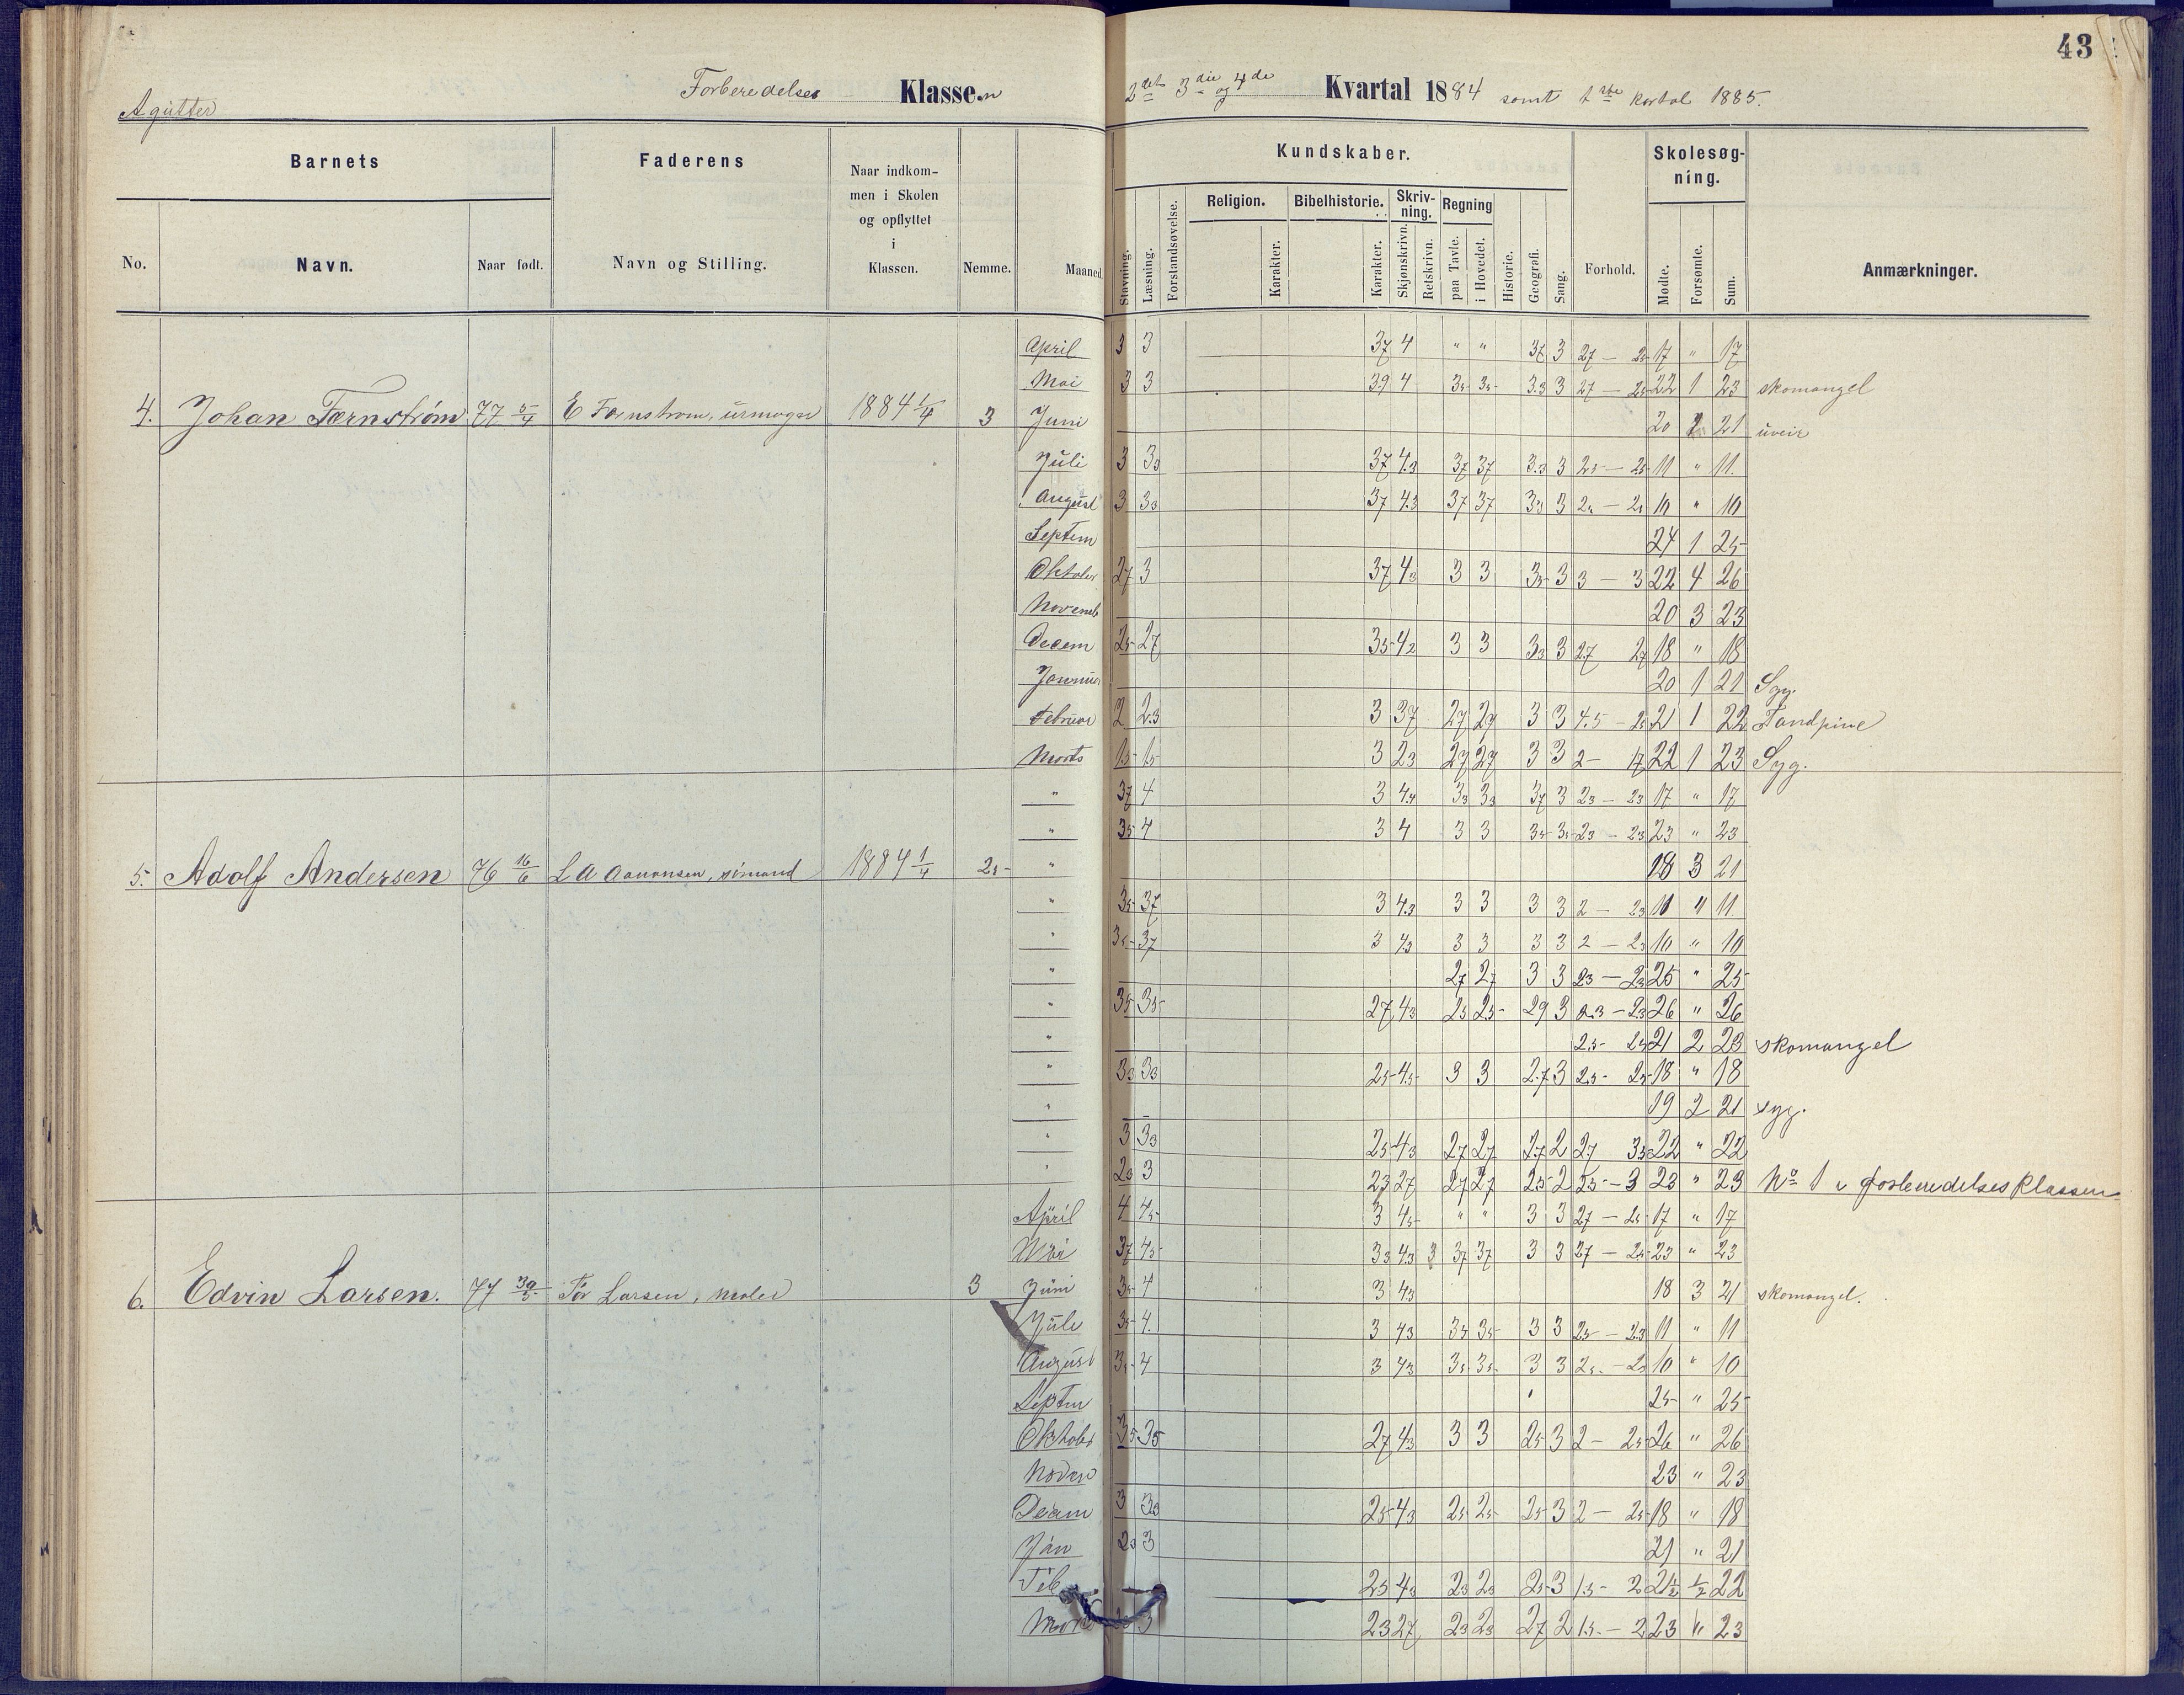 43
Agutter Forberedelses Klassen 2det 3die og 4de Kvartal 1884 samt 1ste Kvartal 1885.
Barnets Faderens Naar indkommen i Skolen og opflyttet i Klassen. Nemme. Maaned. Kundskaber. Forhold. Skolesøgning. Anmærkninger.
No. Navn. Naar født. Navn og Stilling. Stavning. Læsning. Forstandsøvelse. Religion. Karakter. Bibelhistorie. Karakter. Skrivning. Skjønskrivn. Retskrivn. Regning paa Tavle. i Hovedet. Historie. Geografi. Sang. Mødte. Forsømte. Sum.
April 3 3 37 4 " " 37 3 27 — 25 17 " 17
Mai 3 3 39 4 35 35 3.3 3 27 — 25 22 1 23 skomangel
4. Johan Fernstrøm 77 5/4 E Fernstrøm, urmager 1884 1/4 3 Juni 20 1 21 uveir
Juli 3 33 37 4.3 37 37 3.3 3 25 — 25 11 " 11.
August 3 33 37 4.3 37 37 33 3 10 " 10
Septem 24 1 25
Oktober 27 3 37 43 3 3 35 3 3 — 3 22 4 26
Novemb 20 3 23
Decem 25 27 35 42 3 3 33 3 27 27 18 " 18
Januar 20 1 21 Syg.
Februar 2 2.3 3 37 27 27 3 3 4.5 — 21 1 22 Tandpine
Marts 15 15 3 23 27 27 3 3 2 — 17 22 1 23 Syg.
" 37 4 3 4.4 33 33 37 3 23 — 23 17 " 17
" 35 4 3 4 3 3 35 35 23 — 23 23 " 23
5. Adolf Andersen 76 16/6 L A Aanonsen, sømand 1884 1/4 25 " 18 3 21
" 35 37 3 4.3 3 3 3 3 2 — 23 11 " 11.
" 35 37 3 43 3 3 3 3 2 — 23 10 " 10
" 27 27 3 3 23 — 23 25 " 25
" 35 35 27 43 25 25 29 3 2.3 — 23 26 " 26
" 25 — 25 21 2 23 skomangel
" 33 33 25 45 3 3 2.7 3 25 — 25 18 " 18
" 19 2 21 syg.
" 3 33 25 43 27 27 27 2 27 35 22 " 22
" 23 3 23 27 27 27 25 2 25 — 3 23 " 23 No 1 i Forberedelsesklassen
April 4 45 3 45 " " 3 3 27 — 25 17 " 17
Mai 37 45 33 43 3 37 37 3 3 27 — 25 23 " 23
6. Edvin Larsen. 77 30/5 Tor Larsen, maler 3 Juni 35 4 3 43 18 3 21 skomangel.
Juli 35 4. 3 43 35 35 3 3 25 — 23 11 " 11
August 35 4 3 43 35 35 3 3 25 — 10 " 10
Septem 25 " 25
Oktober 35 35 27 43 3 3 25 3 2 — 25 26 " 26
Novem 23 " 23
Decem 3 33 25 43 25 25 25 3 2 — 25 18 " 18
Jan 23 3 21 " 21
Feb 25 43 23 23 25 3 15 — 2 21½ ½ 22
Marts 3 23 27 23 23 27 2 15 — 2 23 " 23